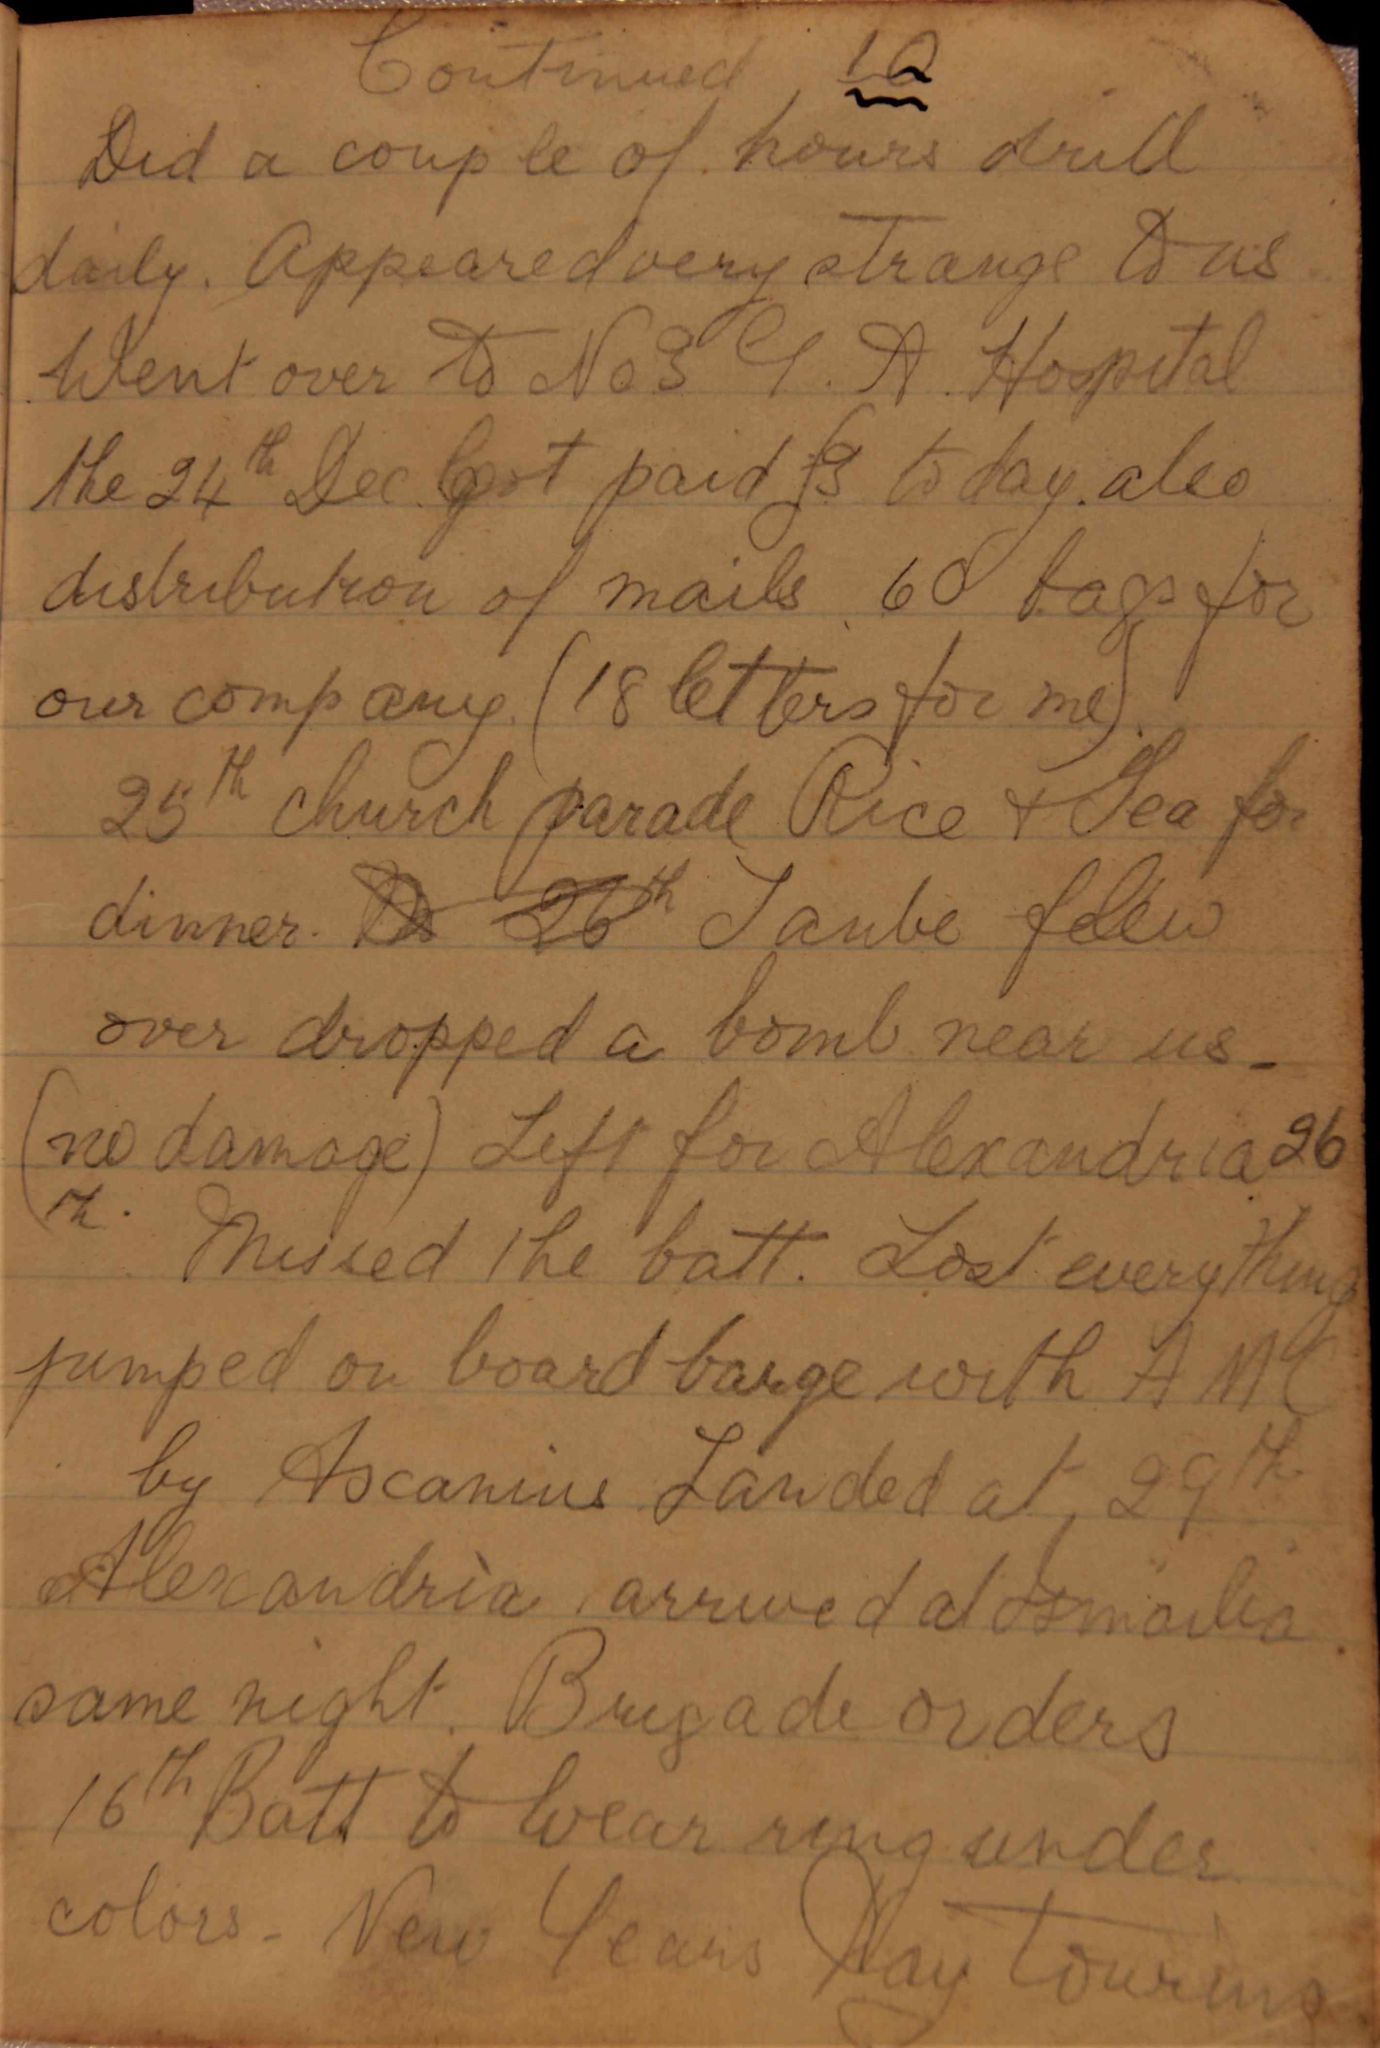 Continued 10
Did a couple of hours drill
daily. Appeared very strange to us
Went over to No 3 G. A. Hospital
the 24th Dec. Got paid £3 today. also
distribution of mails 60 bags for
our company. (18 letters for me).
25th church parade Rice + Tea for
dinner. 26th Taube fleew
over dropped a bomb near us -
(no damage) Left for Alexandria 26
th. Missed the batt. Lost everything
jumped on board barge with A M C
by Ascanius Landed at 29th
Alexandria arrived at Ismailia
same night. Brigade orders
16th Batt to wear ring under
colors - New Years Day touring